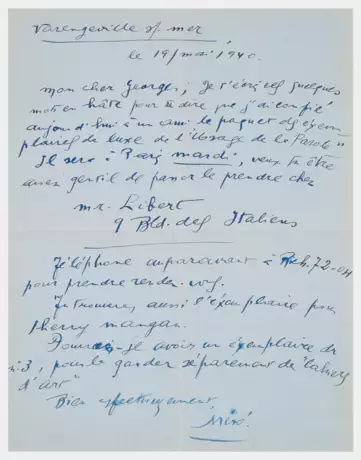 Varengeville s/ mer
le 19/mai/1940.
mon cher Georges; Je t'écris ces quelques
mots en hâte pour te dire que j'ai confié
aujourd'hui à un ami le paquet des exem-
plaires de luxe de "l'Usage de la Parole"
Il sera à Paris mardi, veux tu être
assez gentil de passer le prendre chez
mr. Libert
9 Bld. des Italiens
Téléphone auparavant à 72-04
pour prendre rendez-vous.
Tu trouveras aussi l'exemplaire pour
Sherry Mangan.
Pourrai-je avoir un exemplaire du
n:3, pour le garder séparément de "Cahiers
d'art"
Bien affectueusement
Miró.